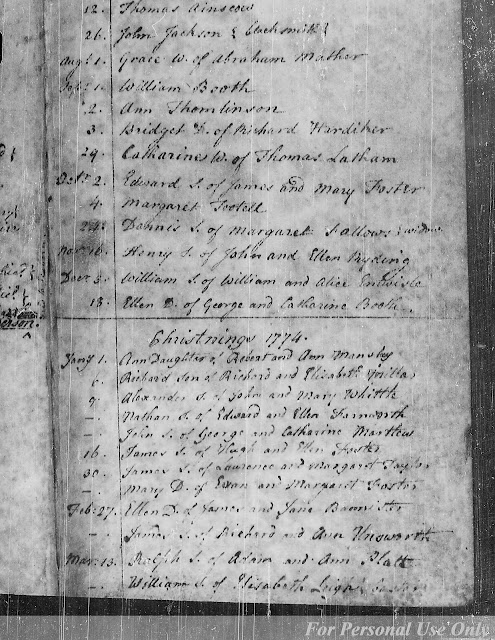 12. Thomas Ainscow
26. John Jackson
Augt 1. Grace W. of Abraham Mather
1. William Booth
2. Ann Thomlinson
3. Bridget D. of Richard Hardiker
29. Catharine W. of Thomas Latham
Octr 2. Edward S. of James and Mary Foster
4. Margaret Footell
24. Dennis S. of Margaret Fallows widow
Novr 16. Henry S. of John and Ellen Ryding
Decr 3. William S. of William and Alice Entwisle
13. Ellen D. of George and Catharine Booth
Christnings 1774.
Jany 1. Ann Daughter of Robert and Ann
6. Richard Son of Richard and Elizabeth
9. Alexander S. of John and Mary Whittle
-. Nathan S. of Edward and Ellen Farnworth
-. John S. of George and Catharine Matthew
16. James S. of Hugh and Ellen Foster
30. James S. of Laurence and Margaret Taylor
-. Mary D. of Evan and Margaret Foster
Feb. 27. Ellen D. of James and Jane Bannister
-. James S. of Richard and Ann Unsworth
Mar. 13. Ralph S. of Adam and Ann Platt
-. William S. of Elizabeth Leigh
For Personal Use Only